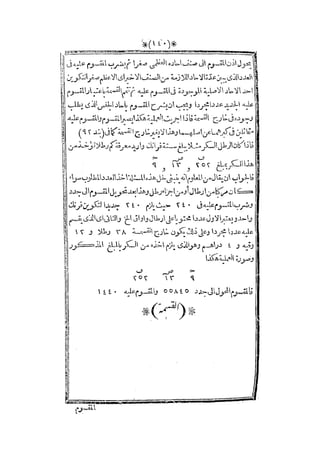 (١٤٠)
يحول اذن المقسوم الى صنف آحاده العظمى صفرا ثم يضرب المقسوم عليه فى
العدد الذى يبين عدة الآحاد اللازمة من الصنف الاخير اى الاعظم صفرا لتكوين
احد الآحاد الاصلية الموجودة فى المقسوم عليه ثم تتم القسمة باعتبار المقسوم
عليه الجديد عددا مجردا ويجب ان يشرح المقسوم بآحاد الجنس الذى يطلب
وجوده فى خارج القسمة فاذا اجريت العملية هكذا يصير المقسوم والمقسوم عليه
عن اصليهما وهذا لا يغير خارج القسمة كما فى (بند ٩٢)
فاذا كان الرطل السكر مثلا يبلغ ستة فرانك وأريد معرفة كم رطلا يؤخذ من
هذا السكر بمبلغ ٢٥٢ و ١٣ و ٩
فالجواب ان يقال من المعلوم انه ينبغى حل هذه المسئلة اخذ العدد المطلوب سواء
كان مركبا من ارطال أو من اجزاء رطل وهذا بعد تحويل المقسوم الى جدد
وضرب المقسوم عليه فى ٢٤٠ حيث يلزم ٢٤٠ جديدا لتكوين فرنك
واحد ويعتبر الاول عددا محتويا على ارطال واواق الخ والثانى اى الذى يقسم
عليه عددا مجردا وعلى ذلك يكون خارج القسمة ٣٨ رطلا و ١٢
وقية و ٤ دراهم وهو الذى يلزم اخذه من السكر بالمبلغ المذكور
وصورة العملية هكذا
٩ ١٣ ٢٥٢
فالمقسوم المحول الى جدد ٥٥٨٤٥ والمقسوم عليه ١٤٤٠
(القسمة)
المقسوم